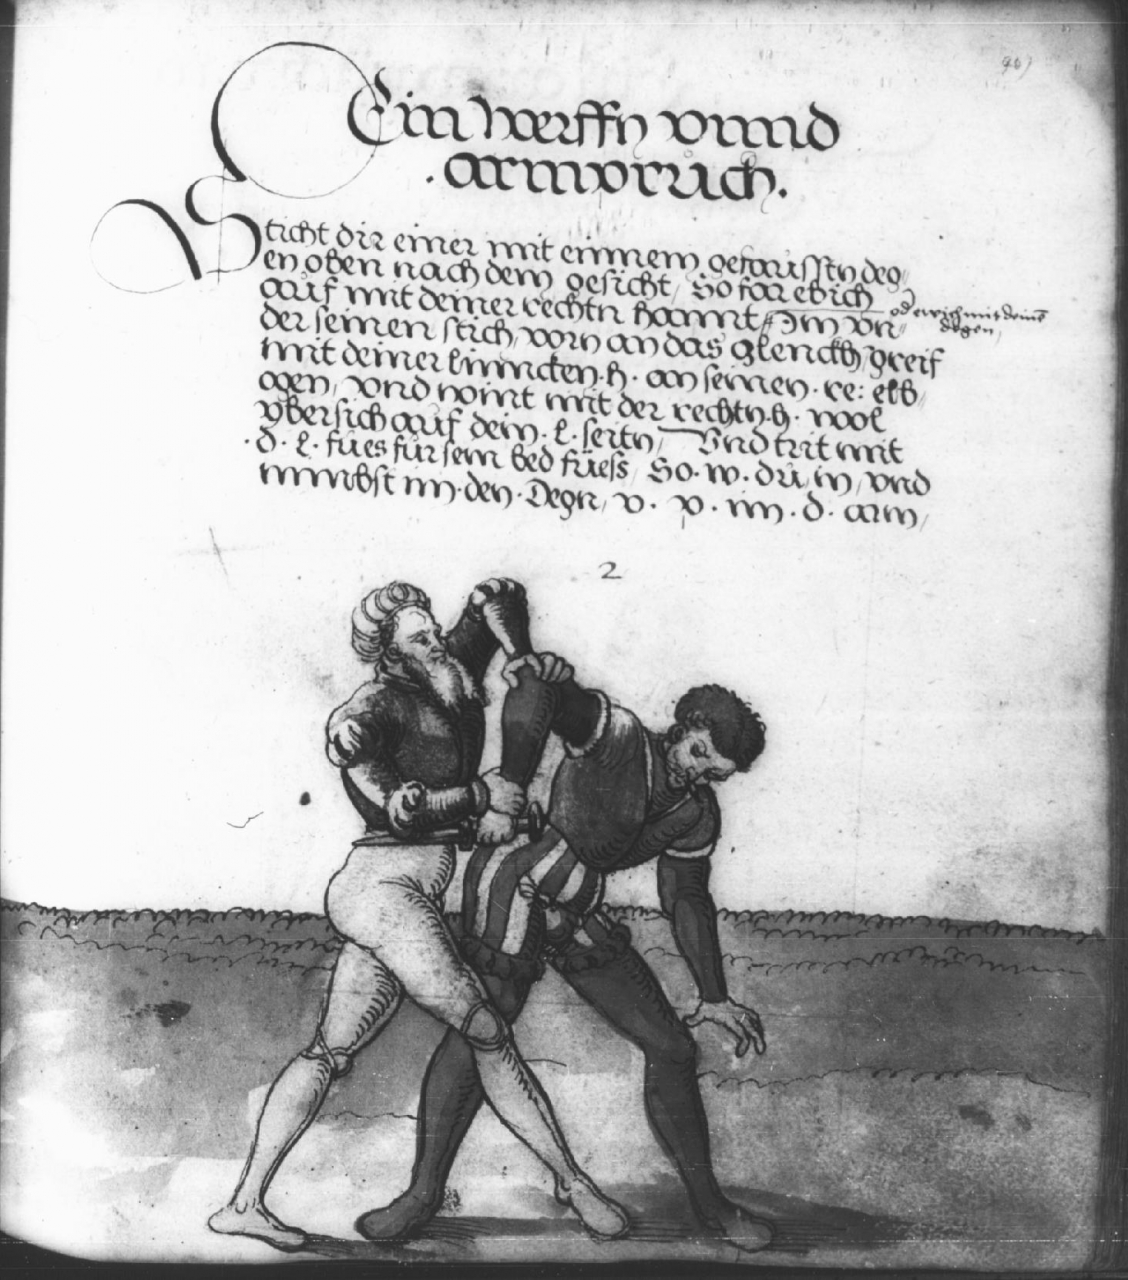 907
Ein werffn vnnd
. armprüch.
Sticht dir einer mit einnem gefaussten deg„
en oben nach dem gesicht, So far ebich
auf mit deiner rechtn hannt, Im vn„
oder wich mit deinē
degen,
der seinen stich, vorn an das glenckh, greif
mit deiner linncken. h. an seinen. re: elb„
ogen, vnd nimt mit der rechtn. h. wol
ybersich auf dein. l. seitn, Vnd trit mit
. d. l. fues für sein bed füess, So. w. du in, vnd
nimbst im. den. Degn, v. p. im. d. arm,
2